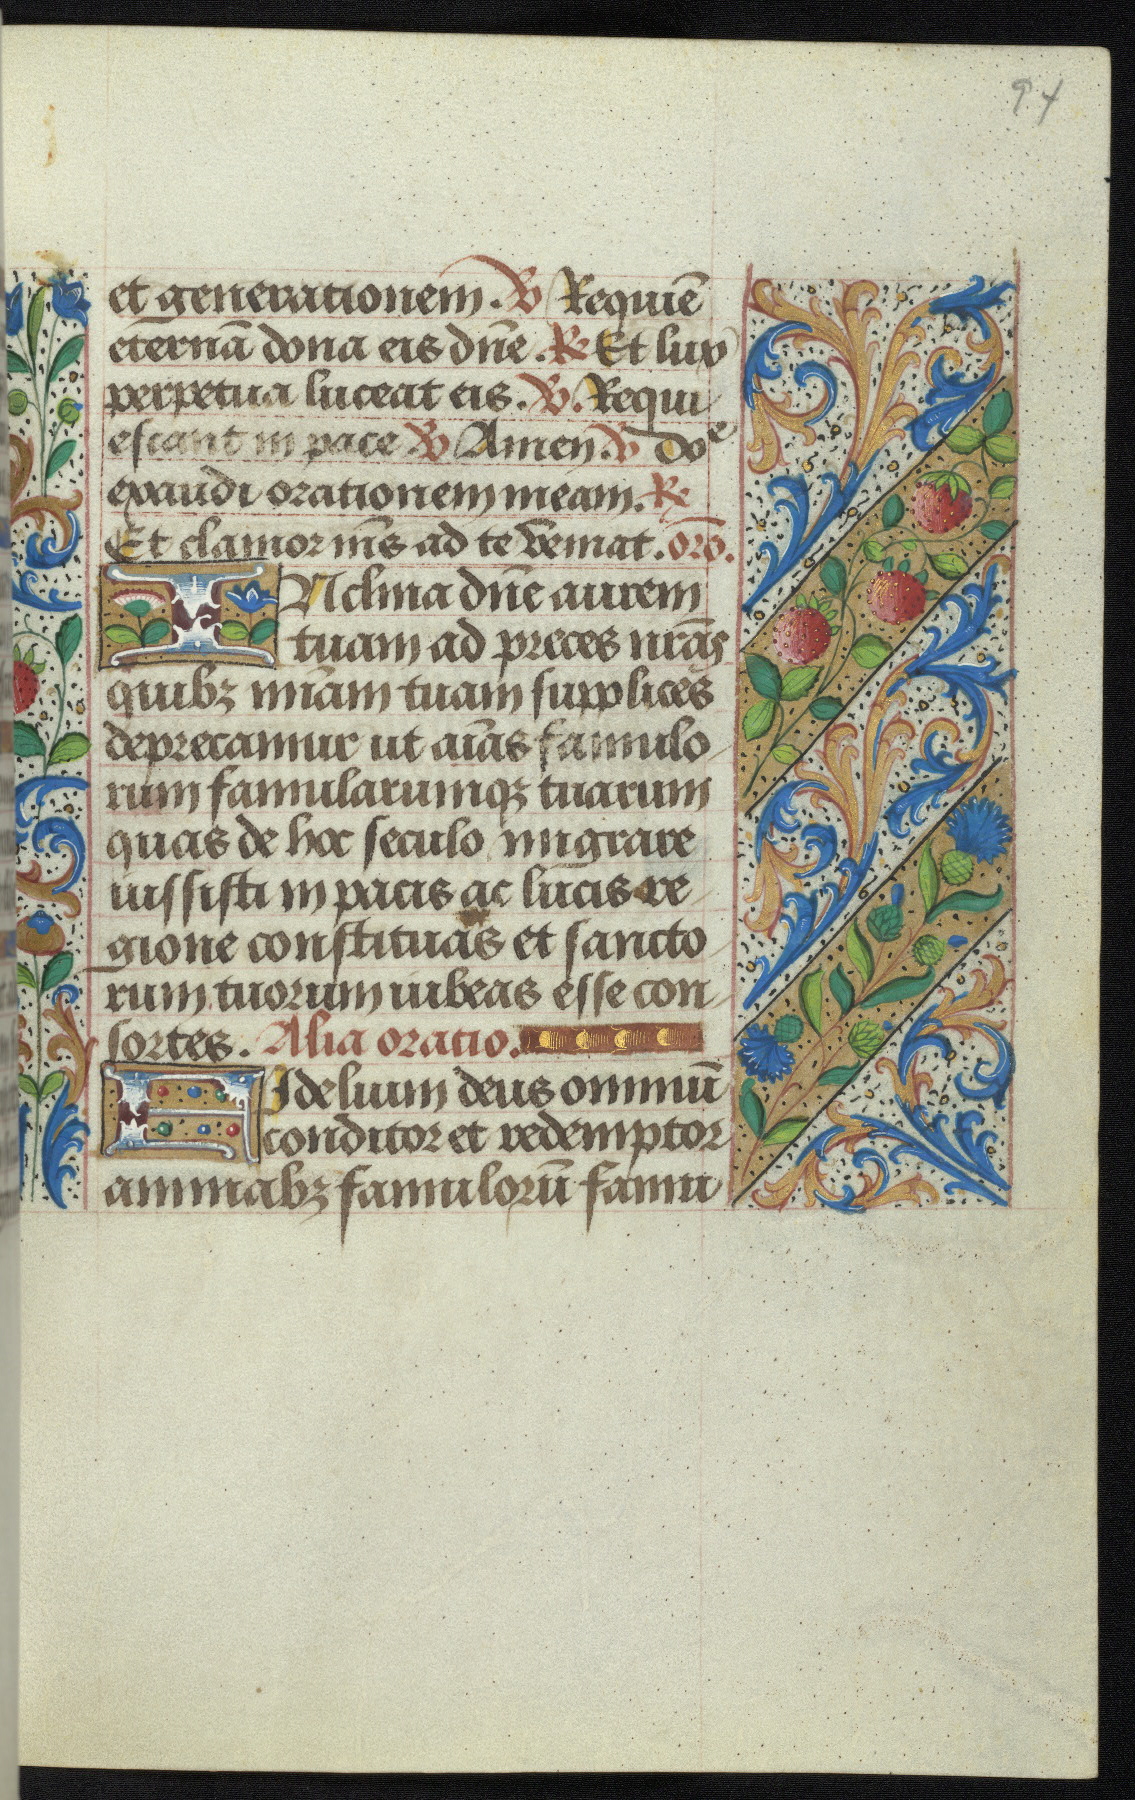 94
et generationem. ℣ Requiē
eternā dona eis dn̄e. ℟ Et lux
perpetua luceat eis. ℣. Requi
escant in pace ℣ Amen. ℣ doᵉ
exaudi orationem meam. ℟
Et clamor m̄s ad te veniat. oro.
INclina dn̄e aurem
tuam ad preces nr̄as
quibꝫ mīam tuam supplices
deprecamur ut aīas famulo
rum famularumqꝫ tuarum
quas de hoc seculo migrare
iussisti in pacis ac lucis re
gione constituas et sancto
rum tuorum iubeas esse con
sortes. Alia oratio.
Fidelium deus omniū
conditor et redemptor
animabꝫ famulorū famu